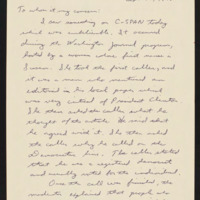 To whom it may concern:
I saw something on C-SPAN today
which was unbelievable. It occurred
during the Washington Journal program,
hosted by a woman whose first name is
Susan. She took the first caller, and
it was a man who mentioned an
editorial in his local paper which
was very critical of President Clinton.
She then asked the caller what he
thought of the article. He said that
he agreed with it. She then asked
the caller why he called on the
Democratic line. The caller stated
that he was a registered democrat
and usually voted for the
Once the call was finished, the
moderator explained that people who